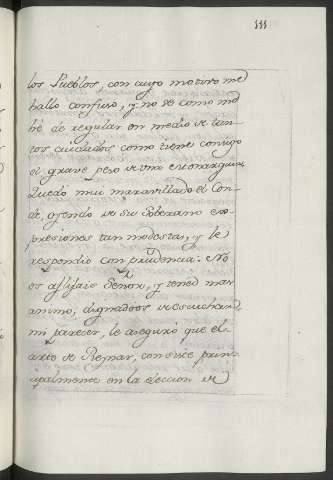 111
los Pueblos, con cuyo motivo me
hallo confuso, y no se como mo
hé de regular en medio de tan-
tos cuidados como tiene consigo
el grave peso de una Monarquia.
Quedó mui maravillado el Con-
de, oyendo de su Soberano ex-
presiones tan modestas, y le
respondio con prudencia: No
os aflijais Señor, y tened mas
animo; dignadoos de escuchar
mi parecer, le aseguró que el
arte de Reynar, consiste prin-
cipalmente en la eleccion de